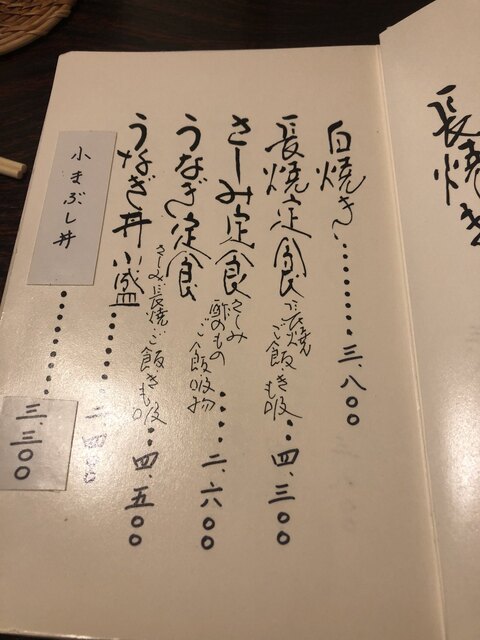 白焼き………三、八〇〇
長焼定食 長焼 ご飯 きも吸…四、三〇〇
さしみ定食 さしみ 酢のもの ご飯 吸物……二、六〇〇
うなぎ定食 さしみ 長焼 ご飯 きも吸…四、五〇〇
うなぎ丼小盛………二、四〇〇
小まぶし丼………三、三〇〇
長焼き